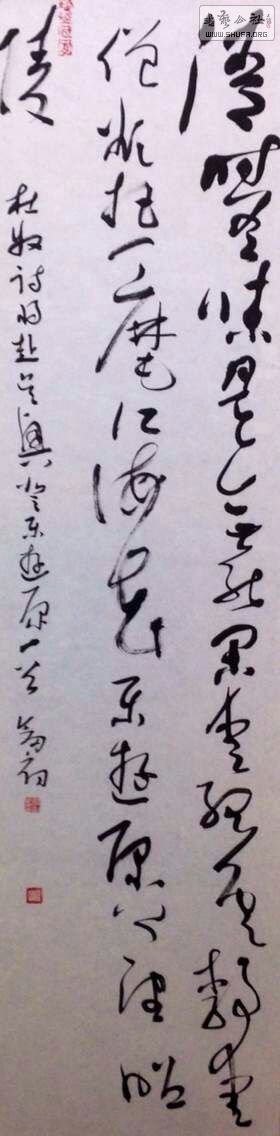 書藝公社
WWW.SHUFA.ORG
清時有味是無能閒愛孤雲靜愛
僧欲把一麾江海去樂遊原上望昭
陵
杜牧詩將赴吳興登樂遊原一首